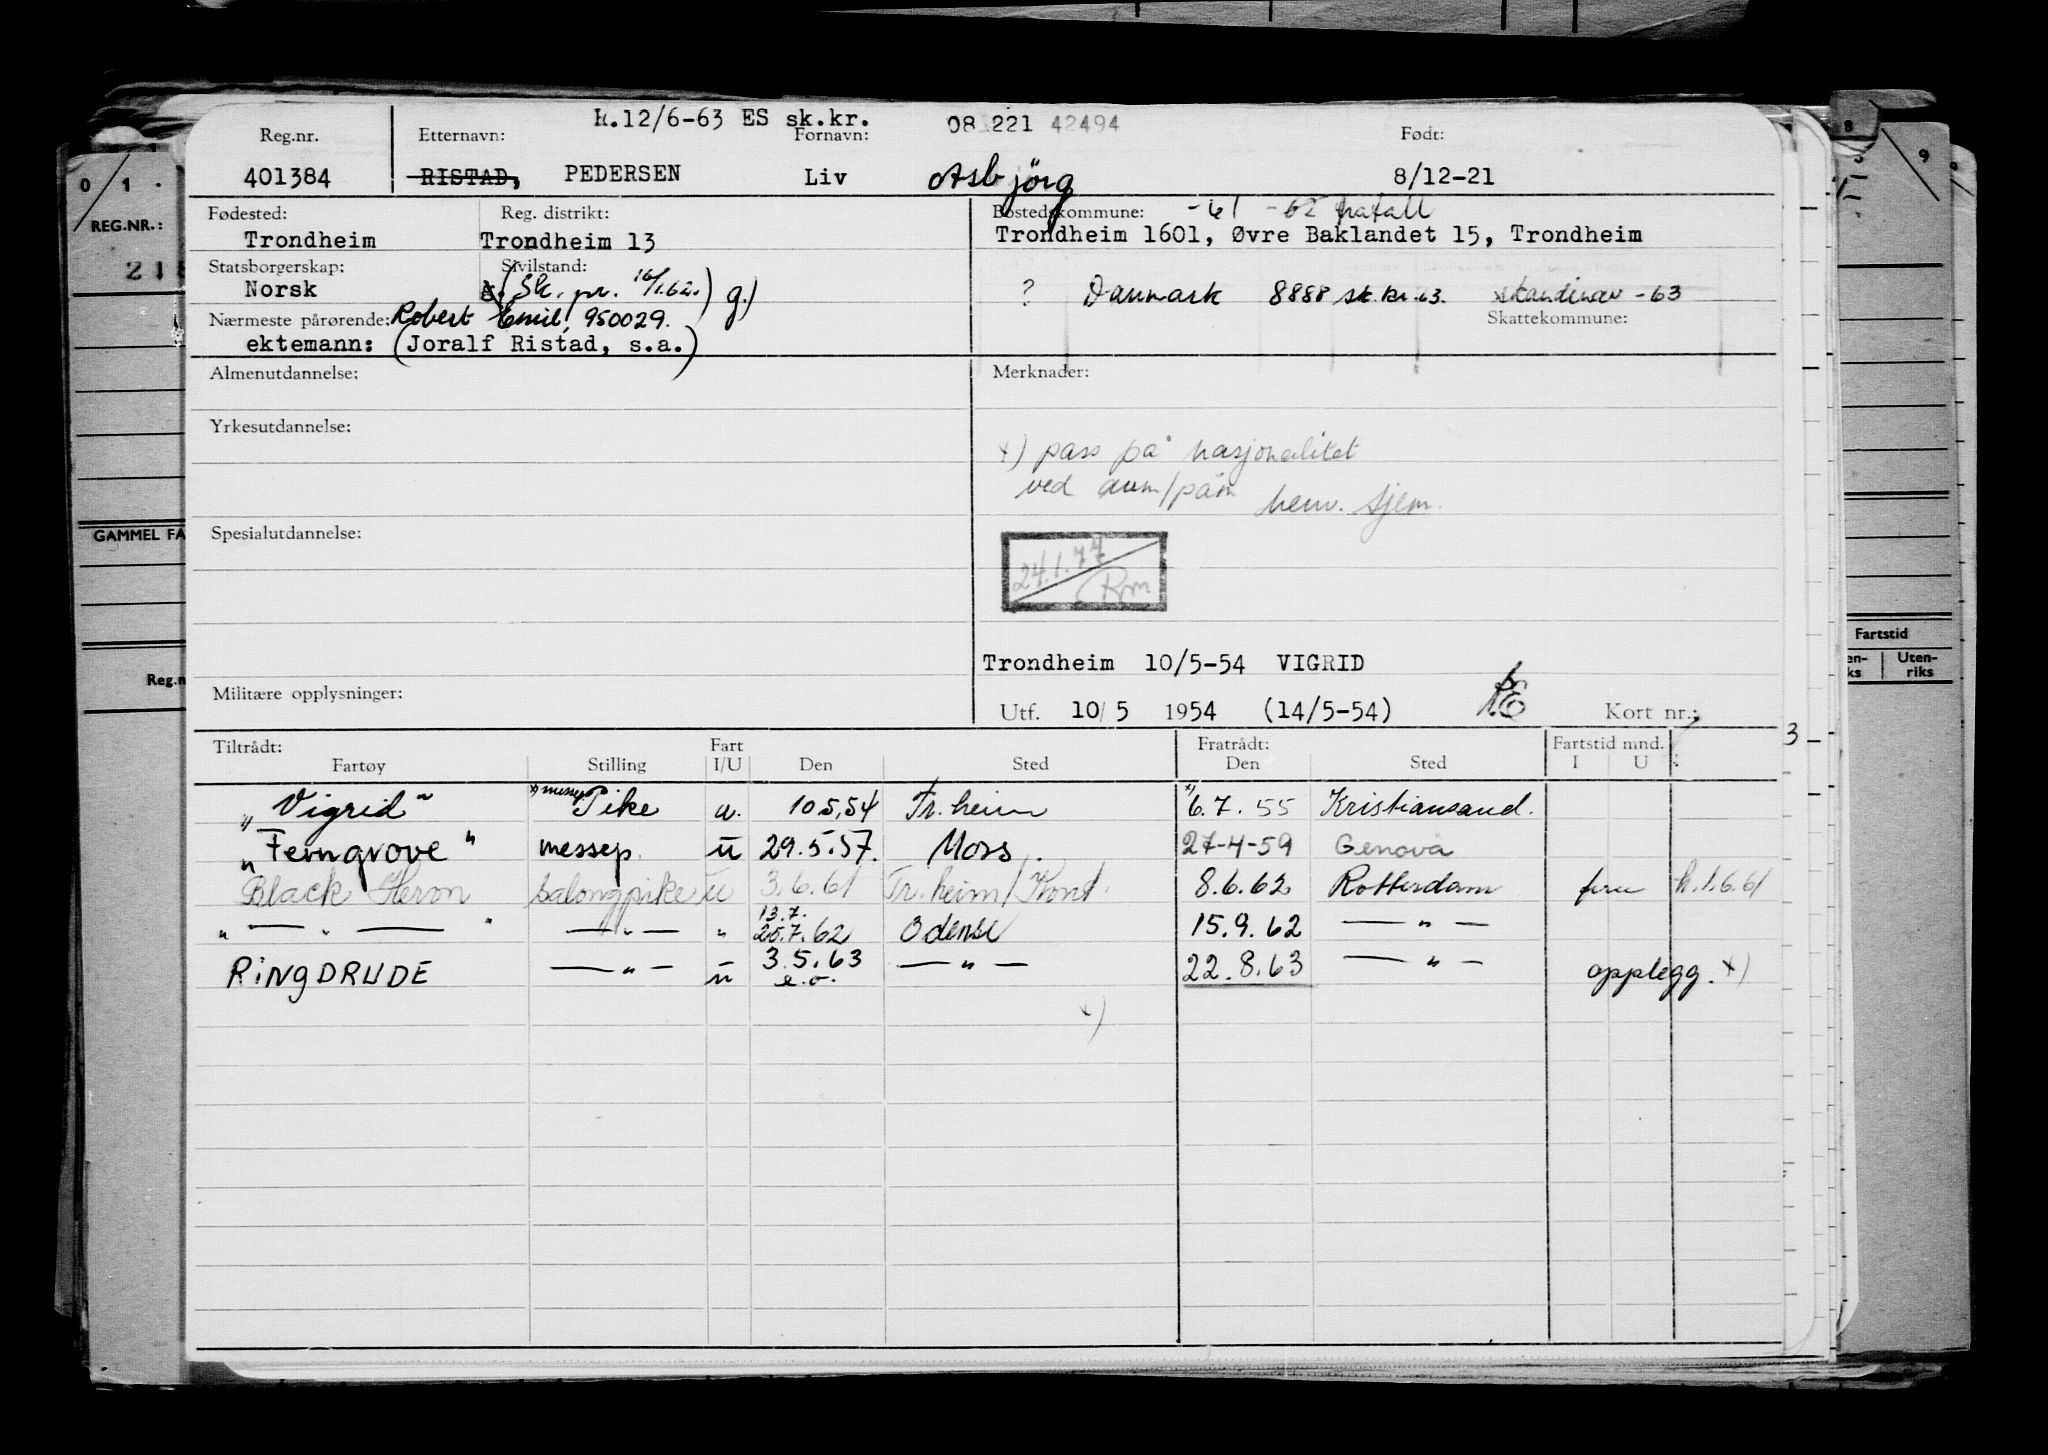 H.12/6-63 ES sk.kr. 08 221 42494
Reg.nr. Etternavn: Fornavn: Født:
401384 RISTAD, PEDERSEN Liv Asbjörg 8/12-21
Fødested: Reg. distrikt: Bostedskommune: -61 -62 frafall
Trondheim Trondheim 13 Trondheim 1601, Øvre Baklandet 15, Trondheim
Statsborgerskap: Sivilstand:
Norsk (Sk. pr. 16/1.62.) g.) ? Danmark 8888 sk.kr.63. skandinav -63
Nærmeste pårørende: Robert Emil, 950029. Skattekommune:
ektemann: (Joralf Ristad, s.a.)
Almenutdannelse: Merknader:
Yrkesutdannelse:
x) pass på nasjonalitet
ved avm/påm henv. sjem.
Spesialutdannelse:
24.1.77
Trondheim 10/5-54 VIGRID
Militære opplysninger:
Utf. 10/5 1954 (14/5-54) Kort nr.:
Tiltrådt: Fart Fratrådt: Fartstid mnd. 3
Fartøy Stilling I/U Den Sted Den Sted I U
"Vigrid" x) messep Pike u. 10.5.54 Tr.heim x) 6.7.55 Kristiansand.
"Ferngrove" messep. u 29.5.57. Mos. 27-4-59 Genova
Black Heron salongpike u 3.6.61 Tr.heim/Kont. 8.6.62 Rotterdam fru h.1.6.61
" — " — " — " — " 13.7.
25.7.62 Odense 15.9.62 — " —
RINGDRUDE — " — u 3.5.63 — " — 22.8.63 — " — opplegg. x)
e.o.
x)
0 1
REG.NR.:
218
GAMMEL FA
Reg.n
8 9
Fartstid
en-
ks Uten-
riks